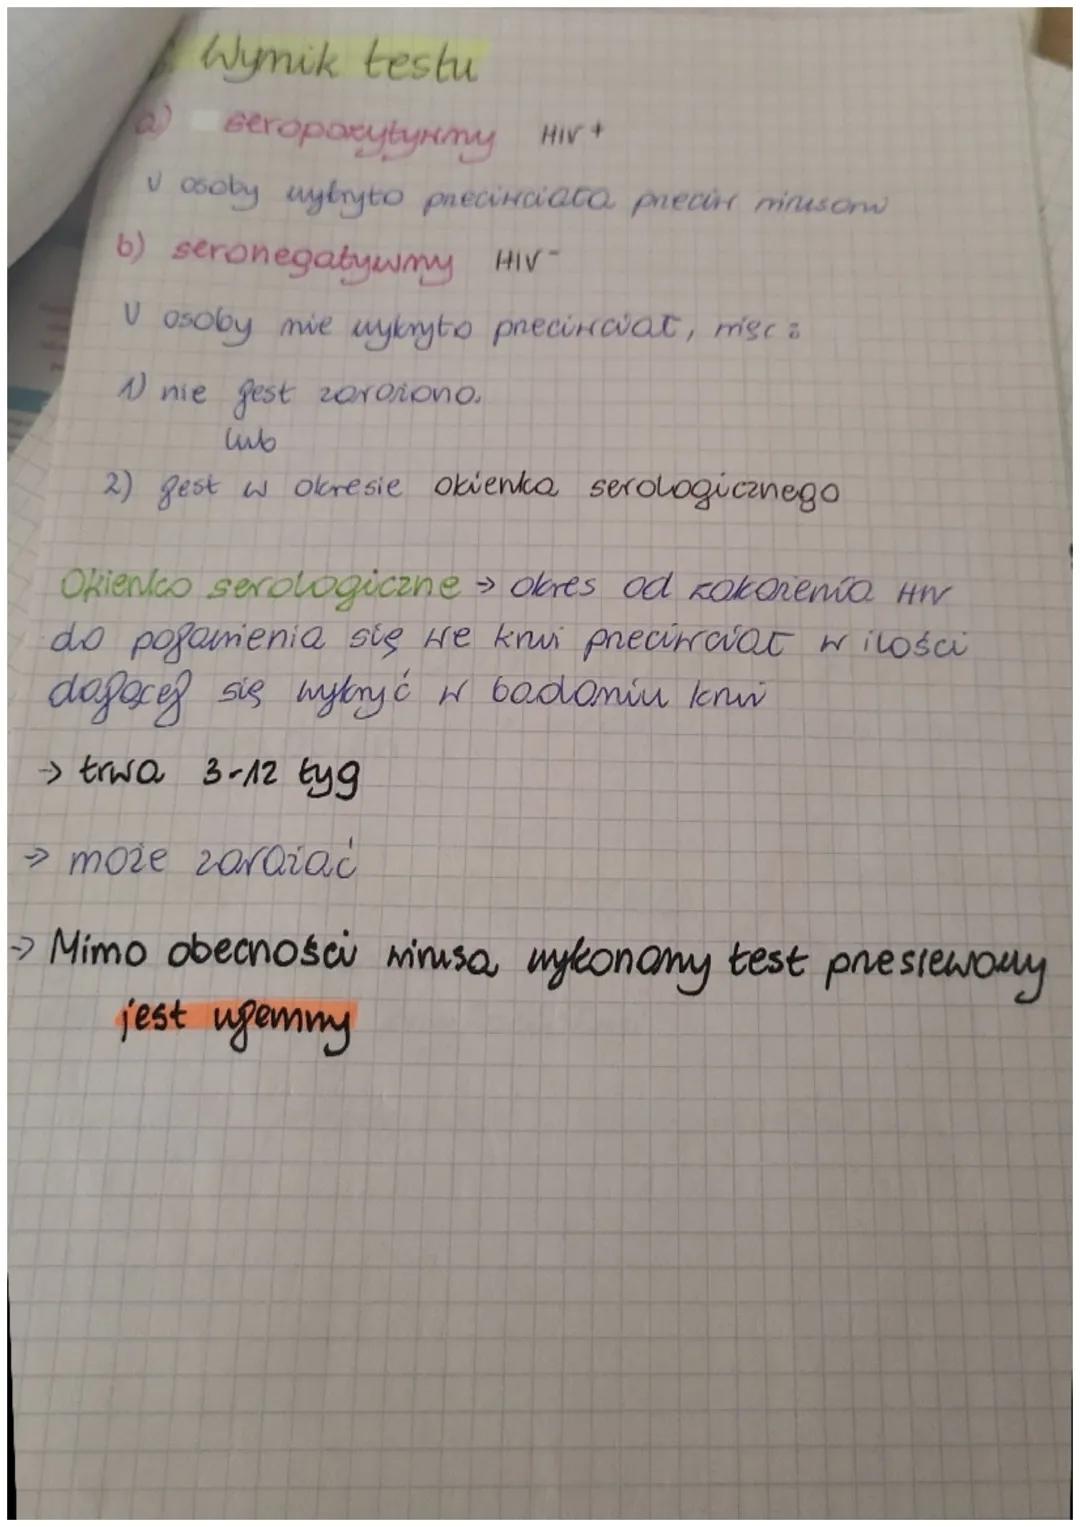 Wynik testu
a) seropozytywny HIV +
U osoby wykryto przeciwciała przeciw wirusowi
b) seronegatywny HIV -
U osoby nie wykryto przeciwciał, więc:
1) nie jest zarażona.
lub
2) jest w okresie okienka serologicznego
Okienko serologiczne → okres od zakażenia HIV
do pojawienia się we krwi przeciwciał w ilości
dającej się wykryć w badaniu krwi
→ trwa 3-12 tyg
→ może zarażać
→ Mimo obecności wirusa wykonany test przesiewowy
jest ujemny